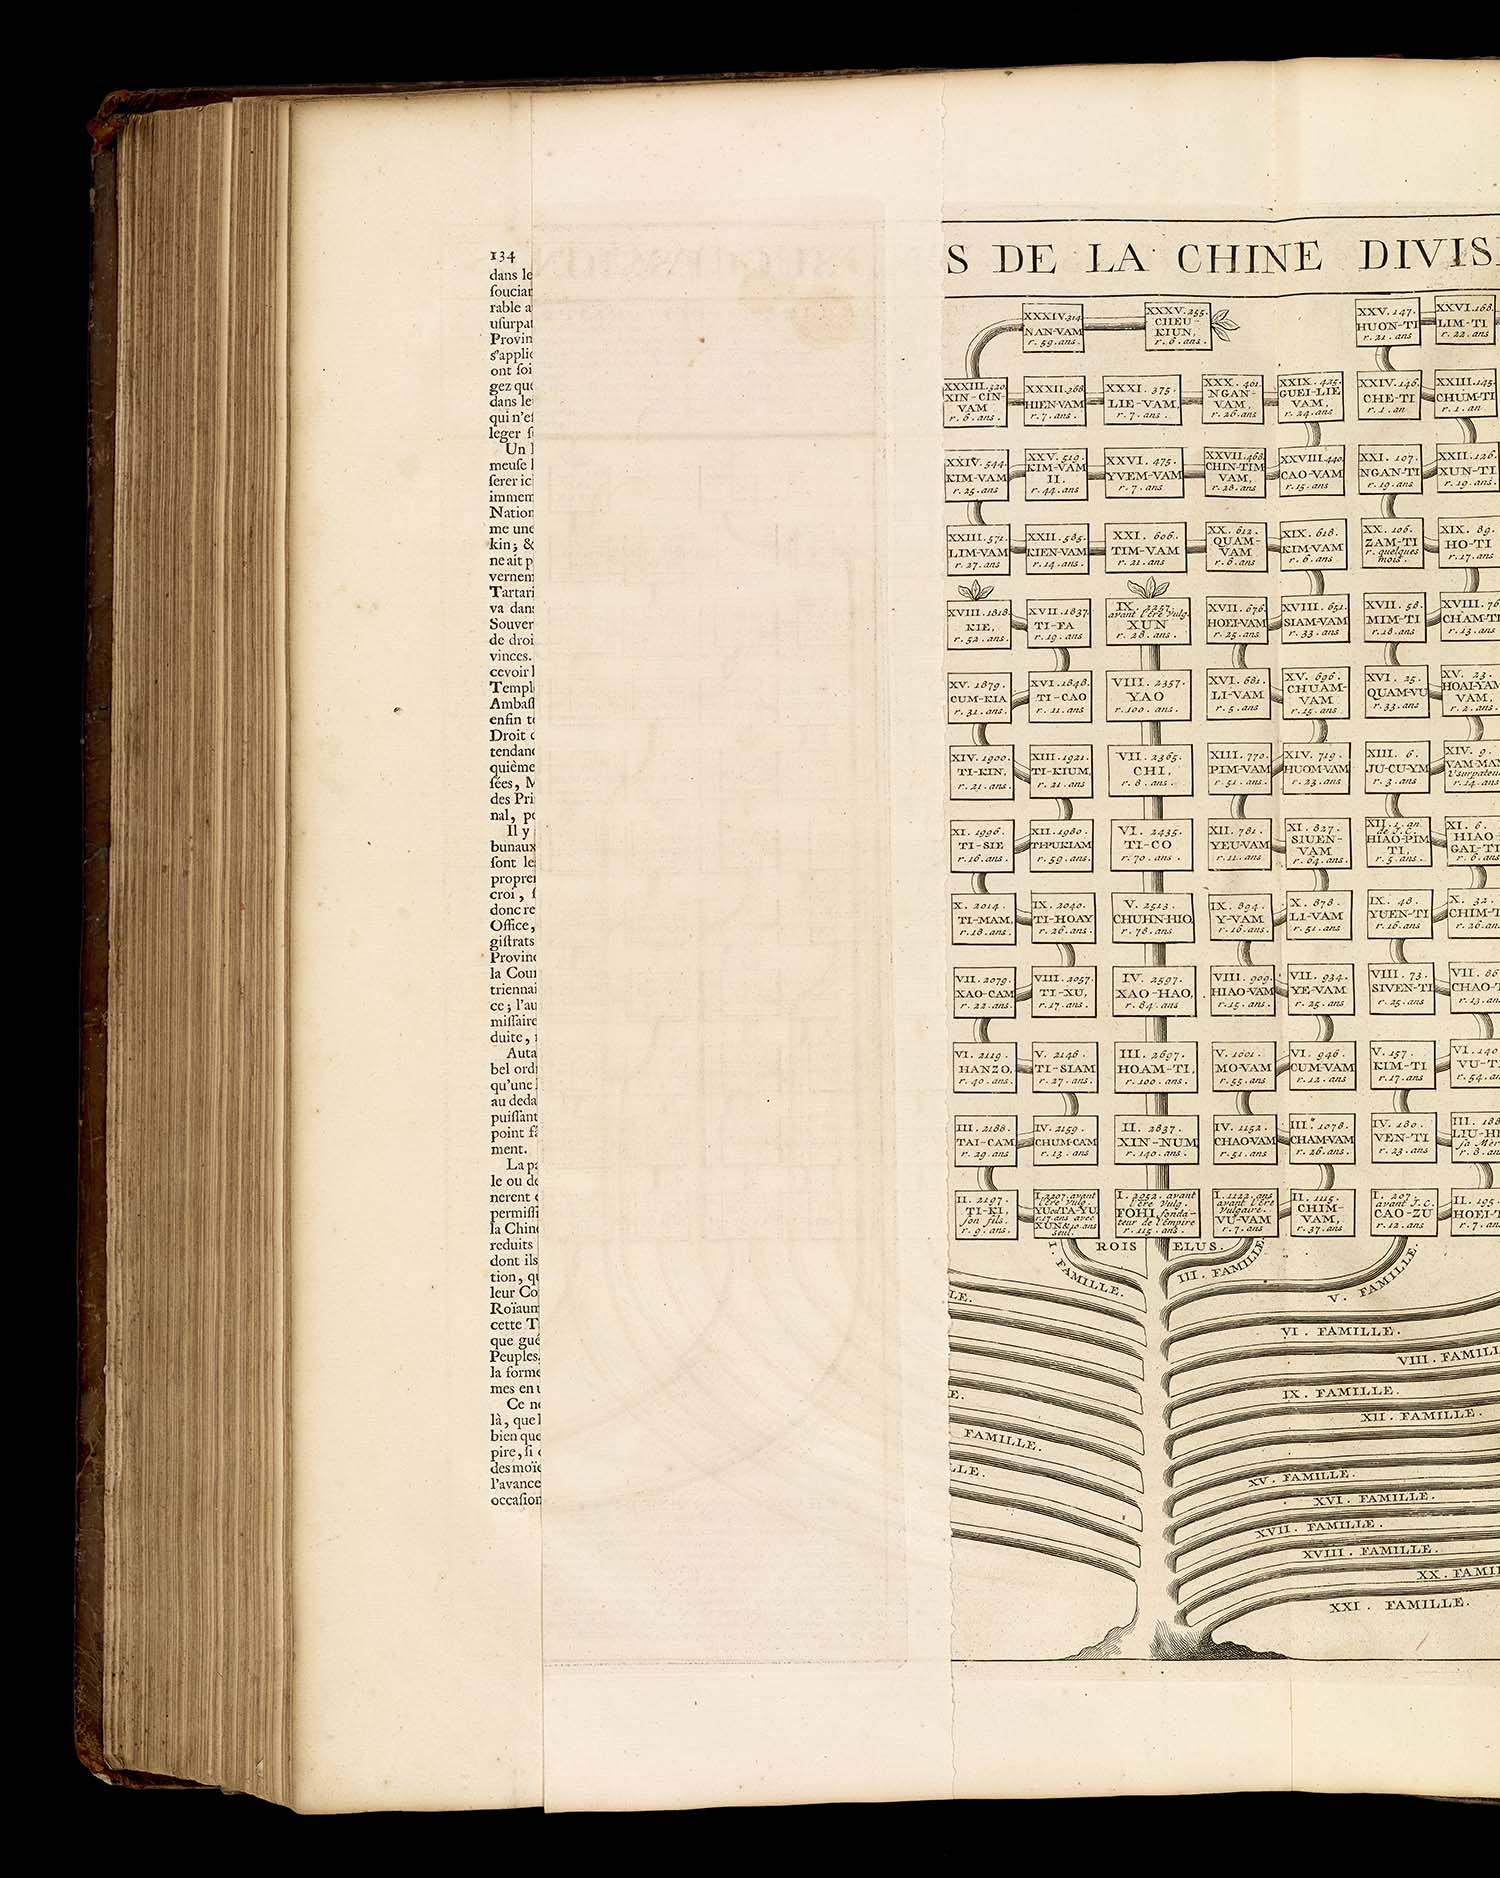 134
dans le
souciar
rable a
usurpat
Provin
s'applic
ont soi
gez que
dans le
qui n'es
leger s
Un
meuse
serer ic
immem
Nation
me une
kin; &
ne ait p
vernem
Tartari
va dans
Souver
de droi
vinces.
cevoir
Temple
Ambass
enfin te
Droit
tendanc
quième
sées, M
des Prin
nal, po
Il y
bunaux
sont les
proprer
croi,
donc re
Office,
gistrats
Provinc
la Cour
triennai
ce; l'au
missaire
duite,
Auta
bel ordr
qu'une
au deda
puissant
point
ment.
La pa
le ou de
nerent
permissi
la Chine
reduits
dont ils
tion, qu
leur Co
Roïaum
cette T
que gué
Peuples,
la forme
mes en
Ce ne
là, que
bien que
pire, si
des moïe
l'avance
occasion
S DE LA CHINE DIVIS
XXXIV.314. NAN-VAM r. 59. ans.
XXXV.255. CHEU-KIUN, r. 6. ans.
XXV. 147. HUON-TI r. 21. ans
XXVI.168. LIM-TI r. 22. ans
XXXIII.320. XIN-CIN-VAM r. 6. ans.
XXXII.368. HIEN-VAM r. 7. ans.
XXXI. 375. LIE-VAM, r. 7. ans.
XXX. 401. NGAN-VAM, r. 26. ans
XXIX. 425. GUEI-LIE VAM, r. 24. ans
XXIV. 146. CHE-TI r. 1. an
XXIII.145. CHUM-TI r. 1. an
XXIV. 544. KIM-VAM r. 25. ans
XXV. 519. KIM-VAM II. r. 44. ans
XXVI. 475. YVEM-VAM r. 7. ans
XXVII.468. CHIN-TIM VAM, r. 28. ans
XXVIII.440. CAO-VAM r. 15. ans
XXI. 107. NGAN-TI r. 19. ans
XXII.126. XUN-TI r. 19. ans.
XXIII. 571. LIM-VAM r. 27. ans
XXII. 585. KIEN-VAM r. 14. ans
XXI. 606. TIM-VAM r. 21. ans
XX. 612. QUAM-VAM r. 6. ans
XIX. 618. KIM-VAM r. 6. ans
XX. 106. ZAM-TI r. quelques mois.
XIX. 89. HO-TI r. 17. ans
XVIII.1818. KIE, r. 52. ans
XVII.1837. TI-FA r. 19. ans
IX. 2257. avant l'ère vulg. XUN r. 28. ans.
XVII. 676. HOEI-VAM r. 25. ans
XVIII. 651. SIAM-VAM r. 33. ans
XVII. 58. MIM-TI r. 18. ans
XVIII. 76 CHAM-TI r. 13. ans
XV. 1879. CUM-KIA r. 31. ans.
XVI.1848. TI-CAO r. 11. ans
VIII. 2357. YAO r. 100. ans.
XVI. 681. LI-VAM r. 5. ans
XV. 696. CHUAM-VAM r. 15. ans
XVI. 25. QUAM-VU r. 33. ans
XV. 23. HOAI-YAM VAM, r. 2. ans
XIV. 1900. TI-KIN, r. 21. ans
XIII. 1921. TI-KIUM, r. 21. ans
VII. 2365. CHI, r. 8. ans
XIII. 770. PIM-VAM r. 51. ans
XIV. 719. HUOM-VAM r. 23. ans
XIII. 6. JU-CU-YM r. 3. ans
XIV. 9. VAM-MAN Usurpateur r. 14. ans
XI. 1996. TI-SIE r. 16. ans
XII. 1980. TI-PUKIAM r. 59. ans.
VI. 2435. TI-CO r. 70. ans
XII. 781. YEU-VAM r. 11. ans
XI. 827. SIUEN-VAM r. 64. ans
XII. 1. an de J.C. HIAO-PIM TI, r. 5. ans
XI. 6. HIAO-GAI-TI r. 6. ans
X. 2014. TI-MAM, r. 18. ans.
IX. 2040. TI-HOAY r. 26. ans
V. 2513. CHUHN-HIO, r. 78. ans
IX. 894. Y-VAM r. 16. ans
X. 878. LI-VAM r. 51. ans
IX. 48. YUEN-TI r. 16. ans
X. 32. CHIM-T r. 26. an
VII. 2079. XAO-CAM r. 22. ans
VIII. 2057. TI-XU, r. 17. ans
IV. 2597. XAO-HAO, r. 84. ans
VIII. 909. HIAO-VAM r. 15. ans.
VII. 934. YE-VAM r. 25. ans
VIII. 73. SIVEN-TI r. 25. ans
VII. 86 CHAO-T r. 13. an
VI. 2119. HANZO, r. 40. ans.
V. 2146. TI-SIAM r. 27. ans
III. 2697. HOAM-TI, r. 100. ans
V. 1001. MO-VAM r. 55. ans
VI. 946. CUM-VAM r. 12. ans
V. 157. KIM-TI r. 17. ans
VI. 140 VU-T r. 54. an
III. 2188. TAI-CAM r. 29. ans
IV. 2159. CHUM-CAM r. 13. ans
II. 2837. XIN-NUM r. 140. ans
IV. 1152. CHAO-VAM r. 51. ans
III. 1078. CHAM-VAM r. 26. ans
IV. 180. VEN-TI r. 23. ans
III. 188 LIU-HE sa Mer r. 8. an
II. 2197. TI-KI, son fils. r. 9. ans
I. 2207. avant l'ère vulg. YU ou TA-YU, r. 17. ans avec XUN & 10. ans seul.
I. 2952. avant l'ère vulg. FOHI, fondateur de l'empire r. 115. ans
I. 1122. ans avant l'ère vulgaire. VU-VAM r. 7. ans
II. 1115. CHIM-VAM, r. 37. ans
I. 207. avant J.C. CAO-ZU r. 12. ans
II. 195. HOEI-T r. 7. an
ROIS ELUS.
I. FAMILLE.
III. FAMILLE.
V. FAMILLE.
LE.
VI. FAMILLE.
VIII. FAMILL
E.
IX. FAMILLE.
XII. FAMILLE.
FAMILLE.
LLE.
XV. FAMILLE.
XVI. FAMILLE.
XVII. FAMILLE.
XVIII. FAMILLE.
XX. FAMI
XXI. FAMILLE.